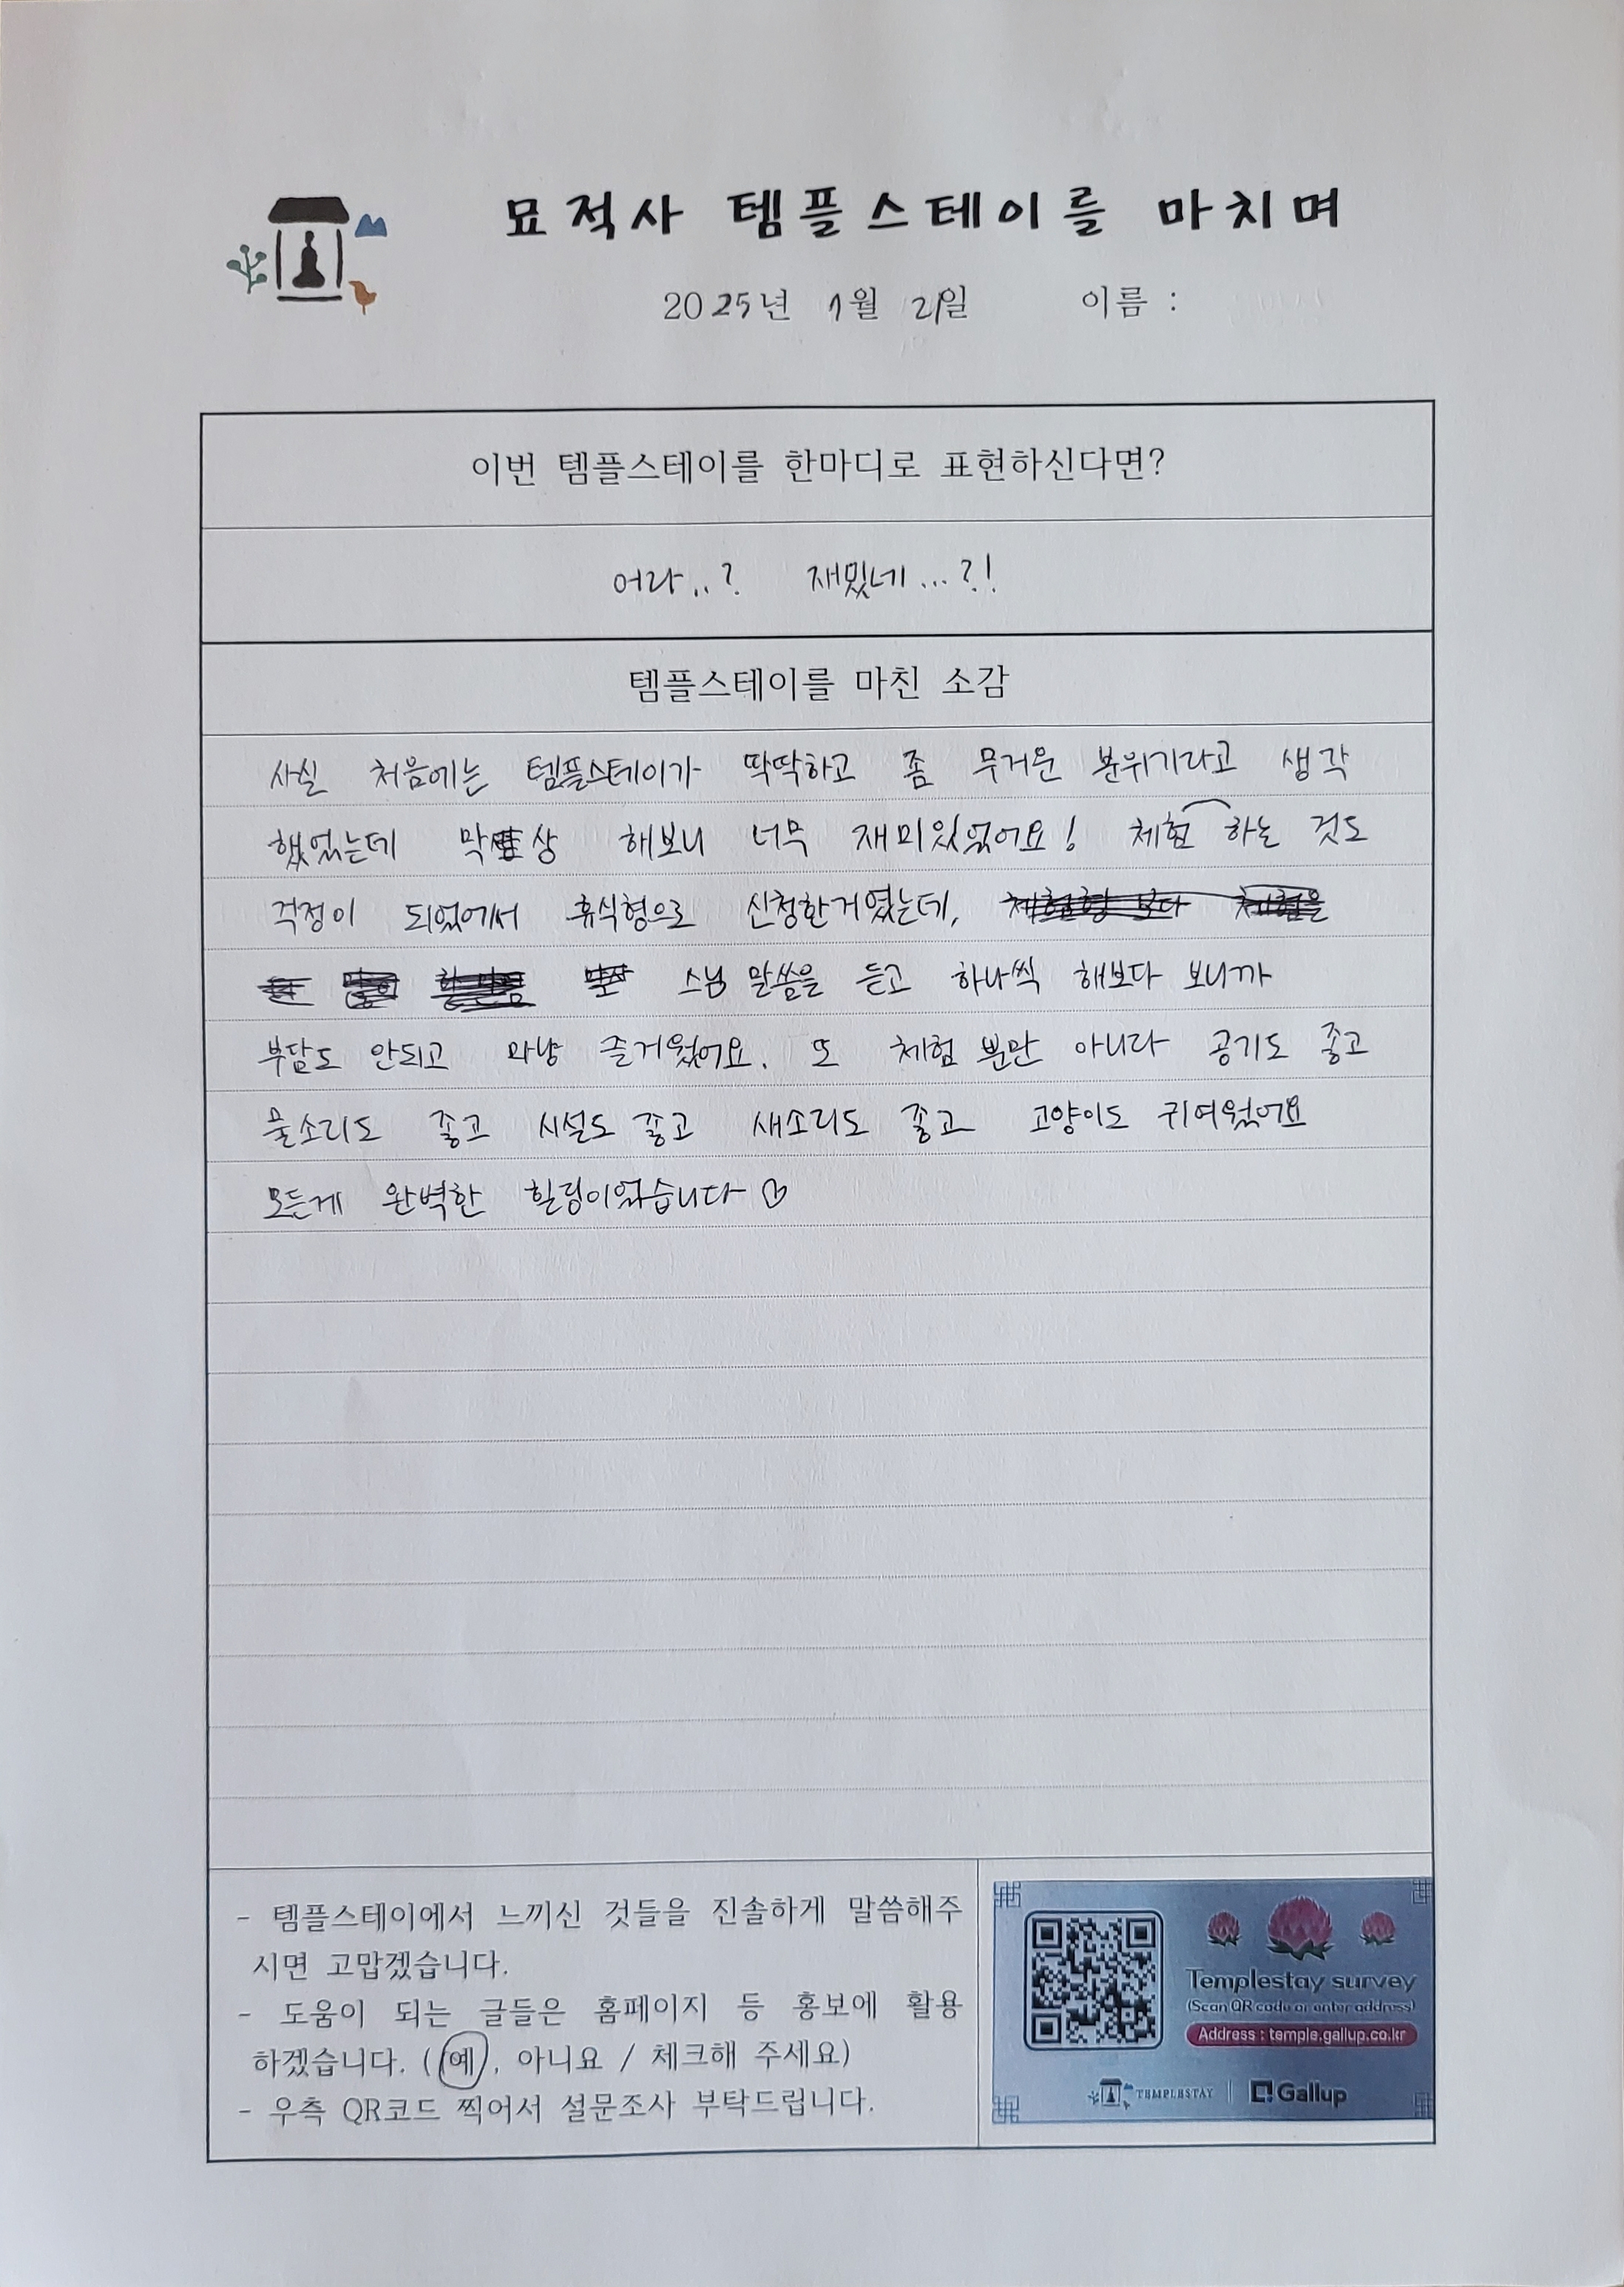 묘적사 템플스테이를 마치며
2025년 1월 21일 이름 :
이번 템플스테이를 한마디로 표현하신다면?
어라..? 재밌네...?!
템플스테이를 마친 소감
사실 처음에는 템플스테이가 딱딱하고 좀 무거운 분위기라고 생각
했었는데 막상 해보니 너무 재미있었어요! 체험하는 것도
걱정이 되었어서 휴식형으로 신청한거였는데,
스님 말씀을 듣고 하나씩 해보다 보니까
부담도 안되고 마냥 즐거웠어요. 또 체험 뿐만 아니라 공기도 좋고
물소리도 좋고 시설도 좋고 새소리도 좋고 고양이도 귀여웠어요
모든게 완벽한 힐링이었습니다♡
- 템플스테이에서 느끼신 것들을 진솔하게 말씀해주
시면 고맙겠습니다.
- 도움이 되는 글들은 홈페이지 등 홍보에 활용
하겠습니다. (예, 아니요 / 체크해 주세요)
- 우측 QR코드 찍어서 설문조사 부탁드립니다.
Templestay survey
(Scan QR code or enter address)
Address : temple.gallup.co.kr
TEMPLESTAY Gallup